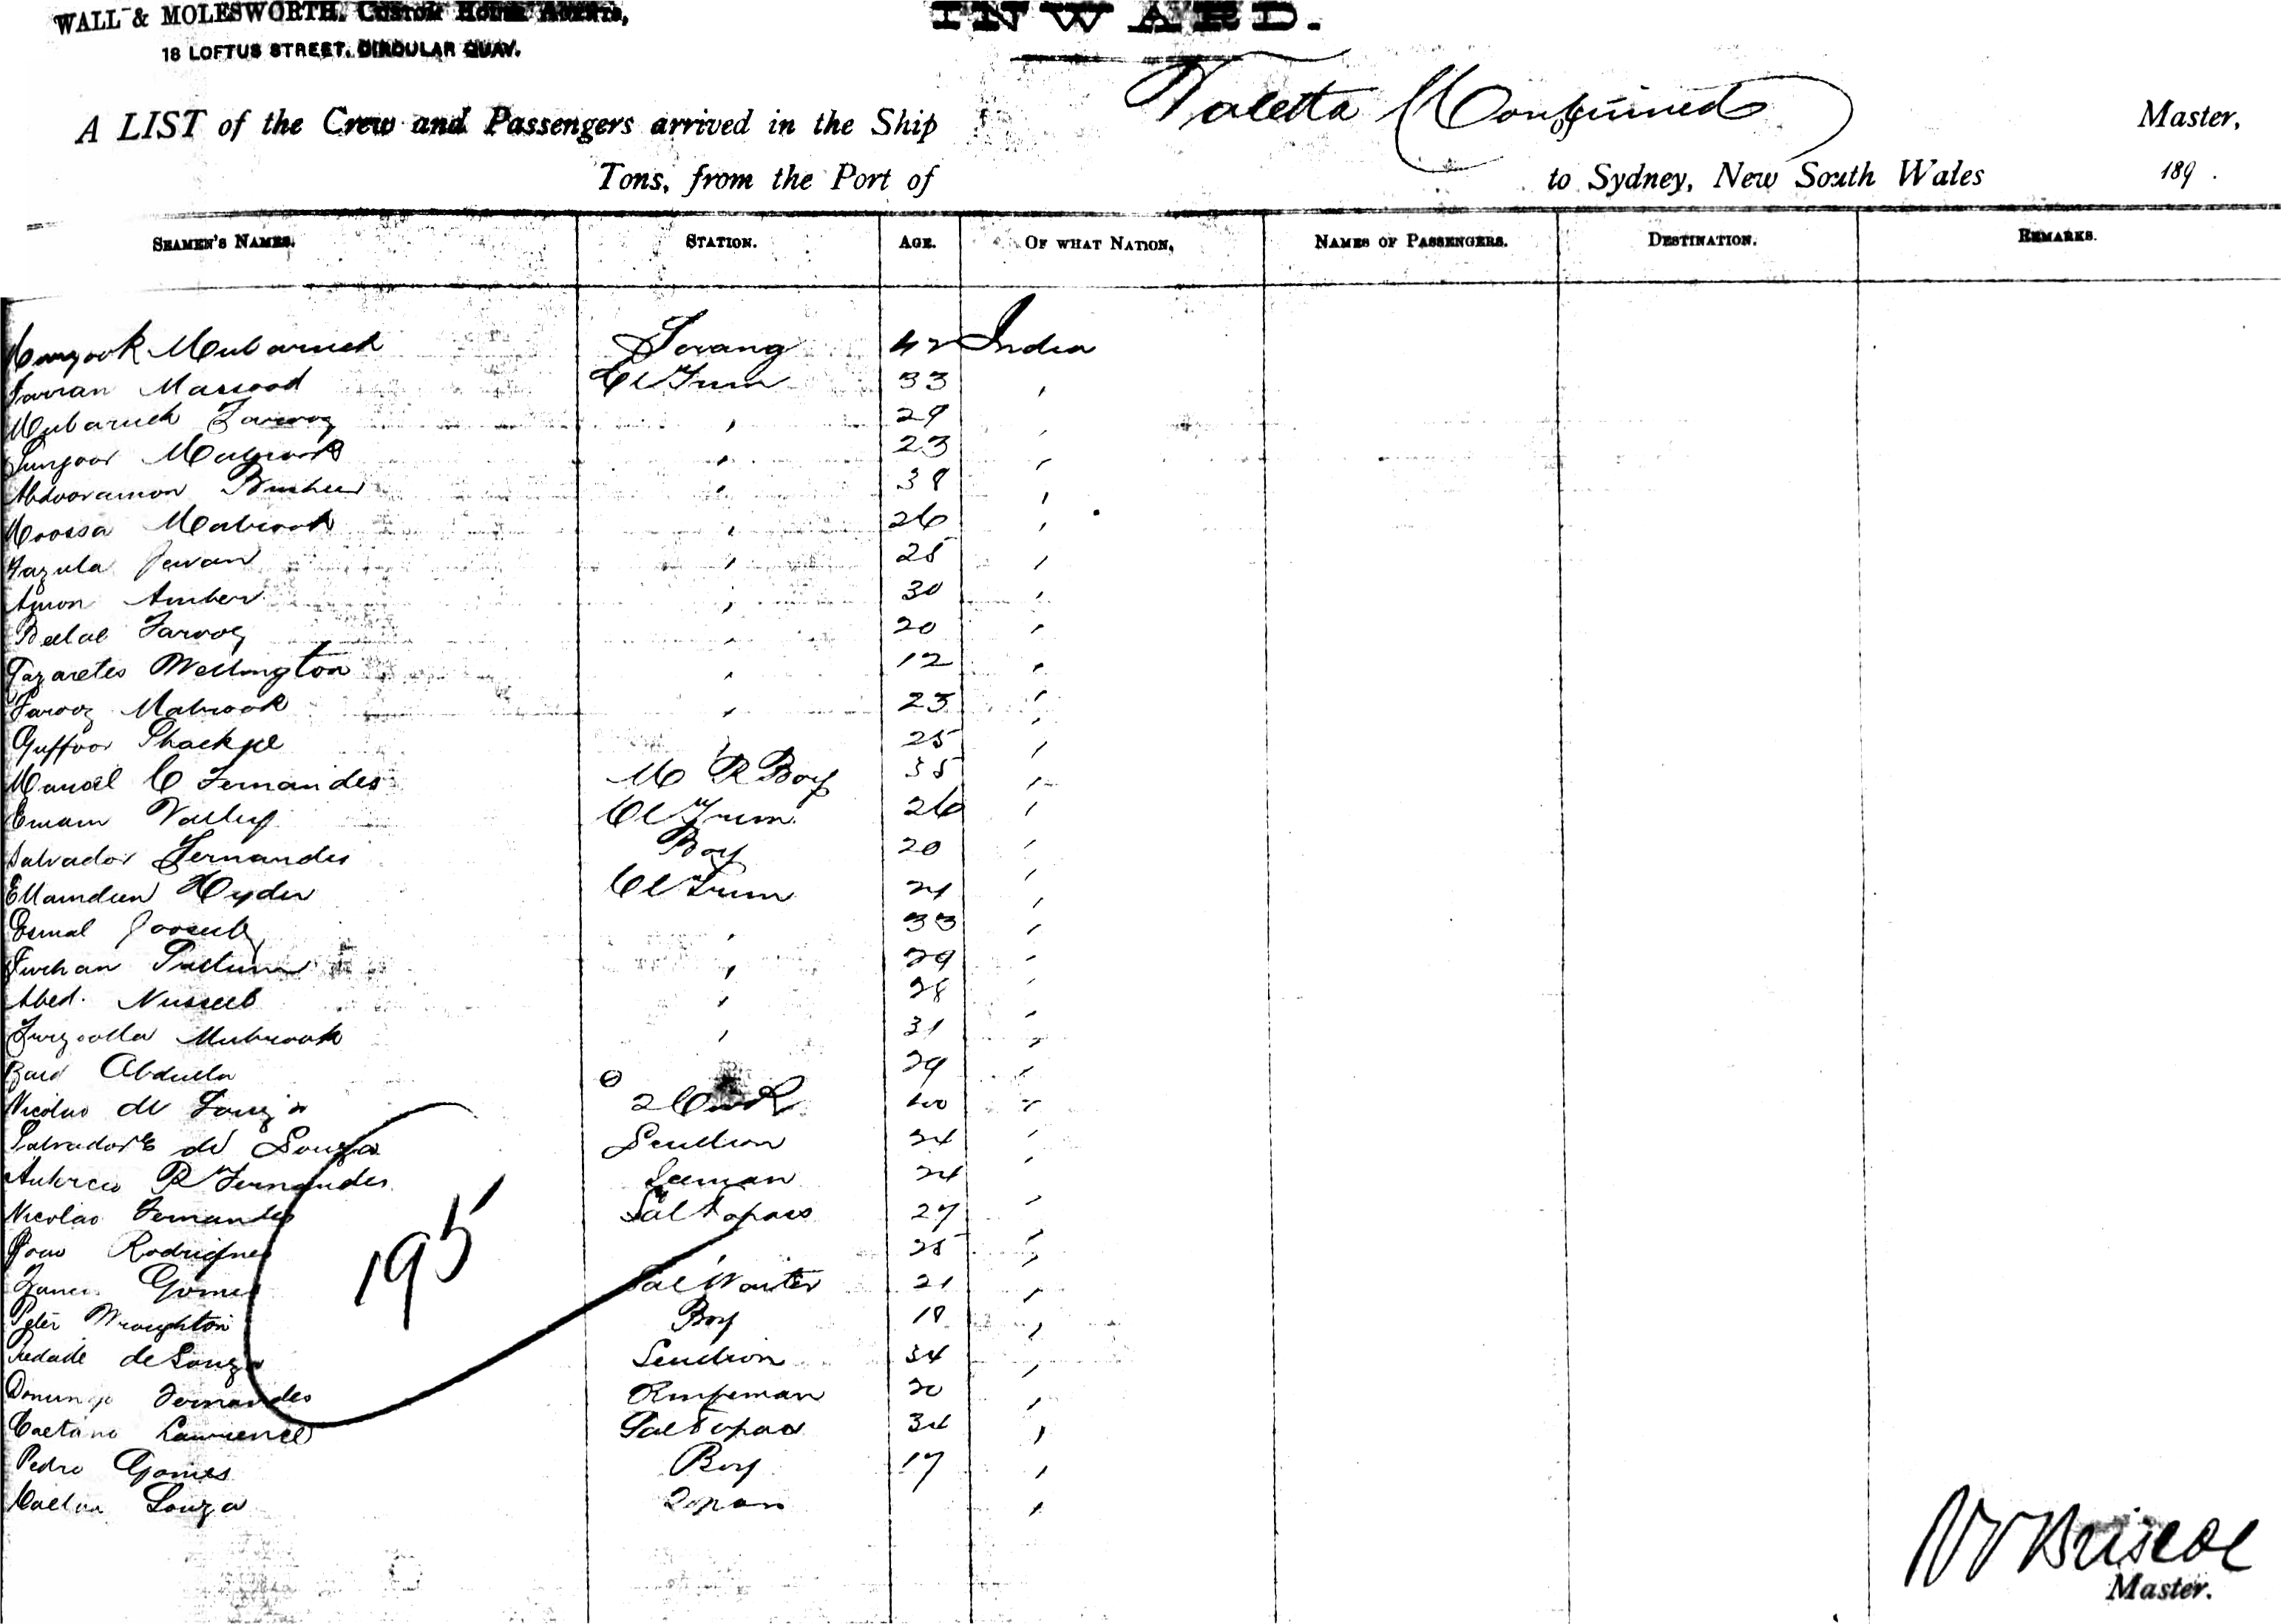 WALL & MOLESWORTH, Custom House Agents,
18 LOFTUS STREET, CIRCULAR QUAY.
INWARD.
A LIST of the Crew and Passengers arrived in the Ship Valetta (Continued) of Master,
Tons, from the Port of to Sydney, New South Wales 189 .
SEAMEN'S NAMES. STATION. AGE. OF WHAT NATION, NAMES OF PASSENGERS. DESTINATION. REMARKS.
Mubaruck Serang 42 India
Farran Massood Cl Trim 33 "
Mubaruck Farooz " 29 "
Sungoor Mabrook " 23 "
Abdooramon " 38 "
Moossa Mabrook " 26 "
Fazula Jewan " 25 "
Amber " 30 "
Belal Farooz " 20 "
Wellington " 12 "
Farooz Mabrook " 23 "
Guffoor " 25 "
Manoel C Fernandes M R Boy 35 "
Emam Valley Cl Trim 26 "
Salvador Fernandes Boy 20 "
Ellamdeen Hyder Cl Trim 24 "
Esmal Joosub " 33 "
Furhan " 29 "
Abed. Nusseeb " 28 "
Mubrook " 31 "
Zaid Abdulla 29 "
Nicolao de Souza 2 Cook 40 "
Salvador de Souza Scullion 24 "
R Fernandes 24 "
Nicolao Fernandes Sal Topass 27 "
Joao Rodrigues " 25 "
Gomes Sal Waiter 21 "
Peter Wroughton Boy 18 "
Piedade de Souza Scullion 34 "
Domingo Fernandes 20 "
Caetano Lawrence Sal Topass 34 "
Pedro Gomes Boy 17 "
Caetan Souza "
195
W Briscoe
Master.